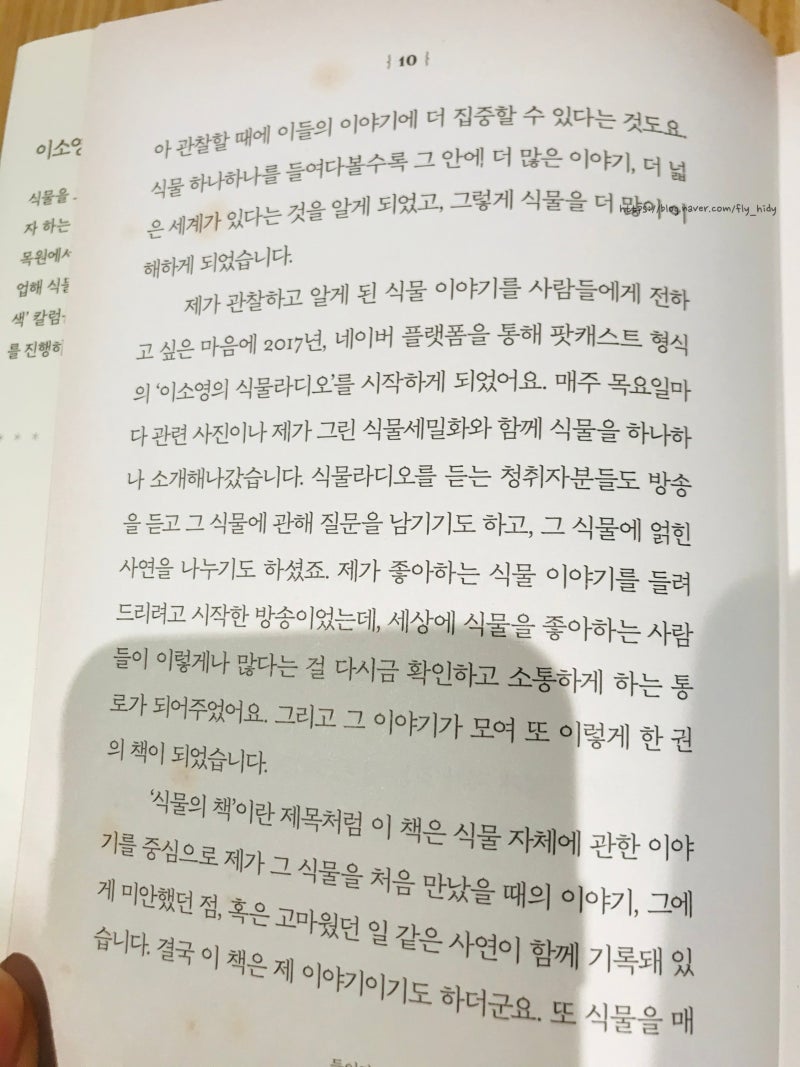 { 10 }
아 관찰할 때에 이들의 이야기에 더 집중할 수 있다는 것도요.
식물 하나하나를 들여다볼수록 그 안에 더 많은 이야기, 더 넓
은 세계가 있다는 것을 알게 되었고, 그렇게 식물을 더
https://blog.naver.com/fly_hidy
해하게 되었습니다.
제가 관찰하고 알게 된 식물 이야기를 사람들에게 전하
고 싶은 마음에 2017년, 네이버 플랫폼을 통해 팟캐스트 형식
의 ‘이소영의 식물라디오’를 시작하게 되었어요. 매주 목요일마
다 관련 사진이나 제가 그린 식물세밀화와 함께 식물을 하나하
나 소개해나갔습니다. 식물라디오를 듣는 청취자분들도 방송
을 듣고 그 식물에 관해 질문을 남기기도 하고, 그 식물에 얽힌
사연을 나누기도 하셨죠. 제가 좋아하는 식물 이야기를 들려
드리려고 시작한 방송이었는데, 세상에 식물을 좋아하는 사람
들이 이렇게나 많다는 걸 다시금 확인하고 소통하게 하는 통
로가 되어주었어요. 그리고 그 이야기가 모여 또 이렇게 한 권
의 책이 되었습니다.
‘식물의 책’이란 제목처럼 이 책은 식물 자체에 관한 이야
기를 중심으로 제가 그 식물을 처음 만났을 때의 이야기, 그에
게 미안했던 점, 혹은 고마웠던 일 같은 사연이 함께 기록돼 있
습니다. 결국 이 책은 제 이야기이기도 하더군요. 또 식물을 매
이소영
식물을
자 하는
목원에서
업해 식물
색’ 칼럼
를 진행하
* * *